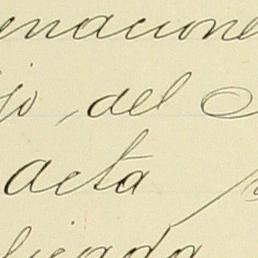 enaciones
jo, del
acta
licada